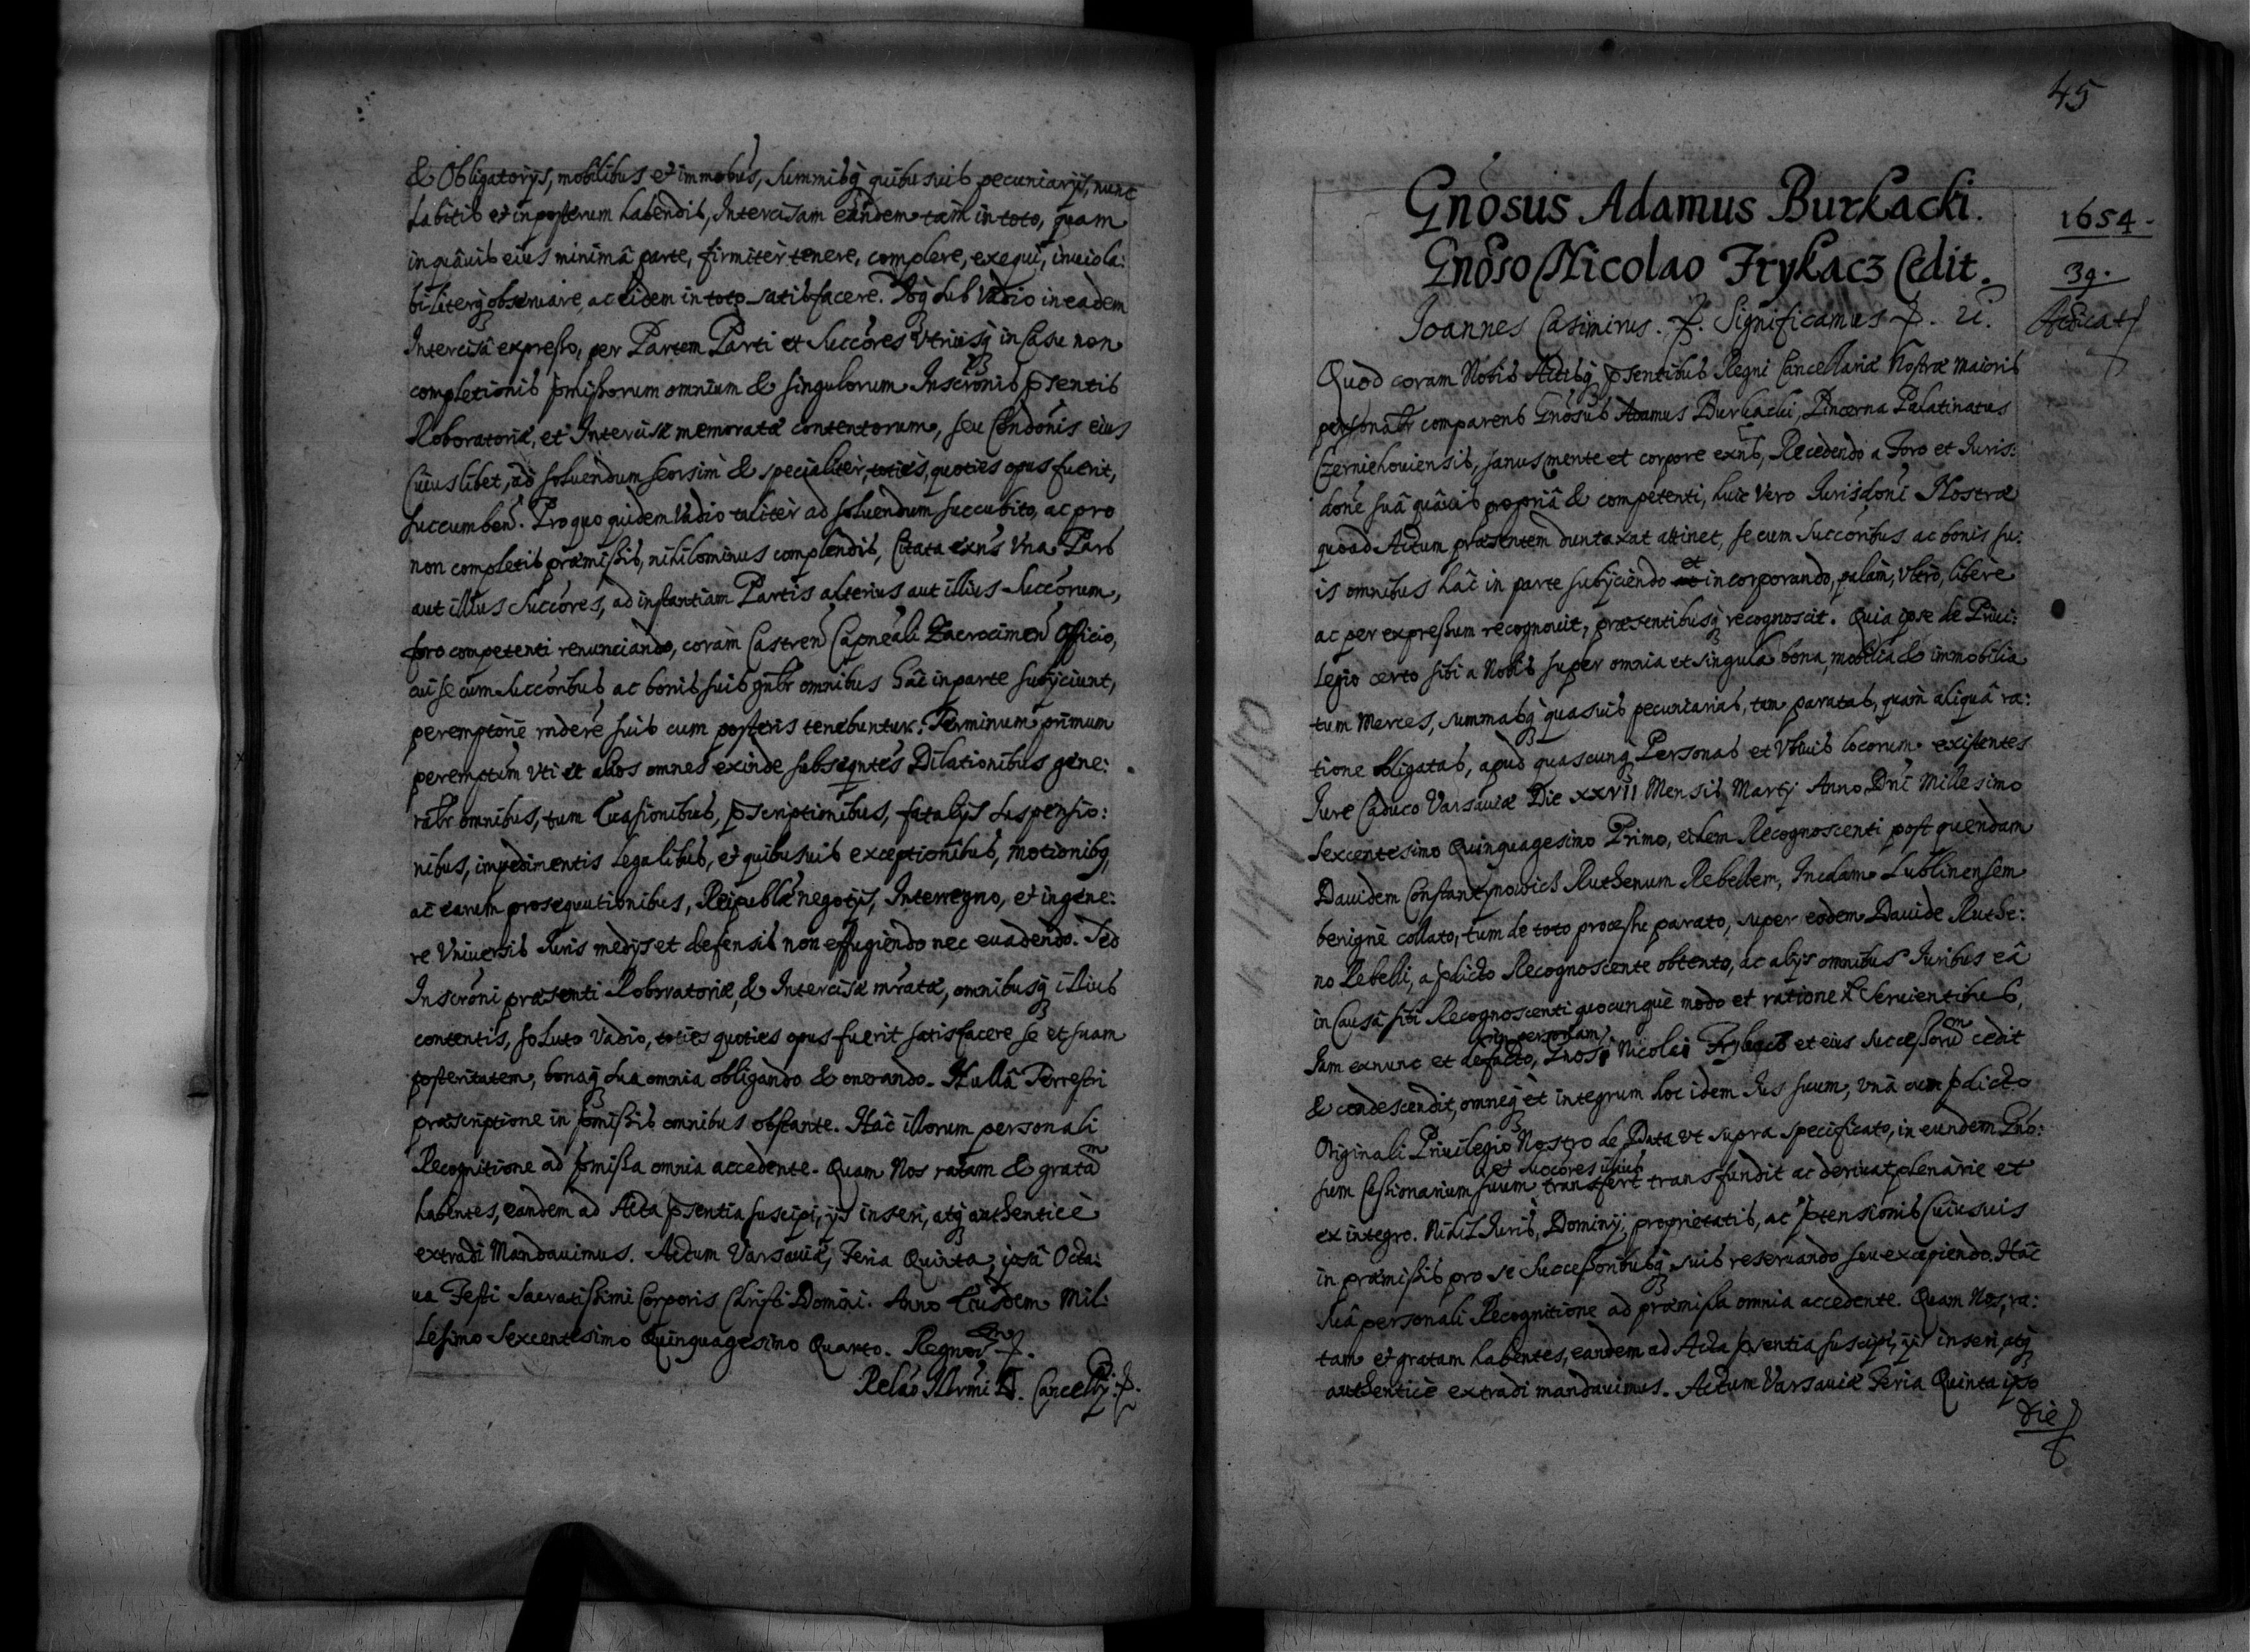 & Obligatorÿs, mobilibus et immobus, summisq3 quibusuis pecuniarÿs, nunc
habitis et inposterum habendis, Intercisam eandem tam in toto, quam
in quâuis eius minimâ parte, firmitèr tenere, complere, exequi, inuiola:
bilitèrq3 obseruare, ac eidem in toto satisfacere. Idq3 sub Vadio in eadem
Intercisâ expresso, per Partem Parti et Succores Vtriusq3 in Casu non
completionis pmissorum omnium & singulorum Inscronis psentis
Roboratoriæ, et Intercisæ memoratæ contentorum, seu Condonis eius
Cuiuslibet, ad soluendum seorsim & specialiter, toties, quoties opus fuerit,
succumben. Pro quo quidem Vadio taliter ad soluendum succubito, ac pro
non completis præmissis, nihilominus complendis, Citata exns Vna Pars
aut illius Succores, ad instantiam Partis alterius aut illius Succorum,
foro competenti renunciando, coràm Castren Capneali Officio,
cui se cum Succoribus ac bonis suis gnlr omnibus hac in parte subÿciunt,
peremptoriè rndere suis cum posteris tenebuntur. Terminum primum
peremptum vti et alios omnes exinde subseqntes Dilationibus gene:
ralr omnibus, tum Euasionibus, pscriptionibus, fatalÿs suspensio:
nibus, impedimentis legalibus, et quibusuis exceptionibus, motionibq3,
ac earum prosequutionibus, Reipublæ negotÿs, Interregno, et in gene:
re Vniuersis Iuris medÿs et defensis non effugiendo nec euadendo. Sed
Inscroni præsenti Roboratoriæ, & Intercisæ mratæ, omnibusq3 illius
contentis, soluto Vadio, toties quoties opus fuerit satisfacere se et suam
posteritatem, bonaq3 sua omnia obligando & onerando. Nullâ Terrestri
præscriptione in pmissis omnibus obstante. Hâc illorum personali
Recognitione ad pmissa omnia accedente. Quam Nos ratam & gratam
habentes, eandem ad Acta psentia suscipi, ÿs inseri, atq3 authenticè
extradi Mandauimus. Actum Varsauiæ, Feria Quinta, ipsâ Octa:
ua Festi Sacratissimi Corporis Christi Domini. Anno Eiusdem Mil:
lesimo Sexcentesimo Quinquagesimo Quarto. Regnor
Relao Illrmi D. Cancellÿ.
45
Gnosus Adamus Burkacki.
Gnoso Nicolao Frykacz Cedit.
1654.
39.
Ioannes Casimirus. Significamus
Quod coram Nobis Actisq3 psentibus Regni Cancellariæ Nostræ maioris
personalr comparens Gnosus Adamus Burkacki, Pincerna Palatinatus
Czerniehouiensis, sanus mente et corpore exns, Recedendo a Foro et Iuris:
done suâ quâuis propriâ & competenti, huic Vero Iurisdoni Nostræ
quoad Actum præsentem duntaxat attinet, se cum Succoribus ac bonis su:
is omnibus hâc in parte subÿciendo et incorporando, palàm, vltrò, liberè
ac per expressum recognouit, præsentibusq3 recognoscit. Quia ipse de Priui:
legio certo sibi a Nobis super omnia et singula bona, mobilia & immobilia
tum Merces, summasq3 quasuis pecuniarias, tam paratas, quàm aliquâ ra:
tione obligatas, apud quascunq3 Personas et Vbiuis locorum existentes
Iure Caduco Varsauiæ Die XXVII Mensis Martÿ Anno Dni Millesimo
Sexcentesimo Quinquagesimo Primo, eidem Recognoscenti post quendam
Dauidem Constantynowich Ruthenum Rebellem, Incolam Lublinensem
benignè collato, tum de toto processu parato, super eodem Dauide Ruthe:
no Rebelli, a pdicto Recognoscente obtento, ac alÿs omnibus Iuribus eâ
in Causâ sibi Recognoscenti quocunque modo et ratione seruientibus,
in personam
Iam exnunc et defacto, Gnosi Nicolai Frykacz et eius Successorum cedit
& condescendit, omneq3 et integrum hoc idem Ius suum, vnâ cum pdicto
Originali Priuilegio Nostro de Data vt supra specificato, in eundem Gno:
et succores illius
sum Cessionarium suum transfert transfundit ac deriuat plenariè et
ex integro. Nihil Iuris, Dominÿ, proprietatis, ac ptensionis Cuiusuis
in præmissis pro se Successoribusq3 suis reseruando seu excipiendo. Hâc
suâ personali Recognitione ad præmissa omnia accedente. Quam Nos ra:
tam et gratam habentes, eandem ad Acta psentia suscipi, ÿs inseri, atq3
authenticè extradi mandauimus. Actum Varsauiæ Feria Quinta ipso
die